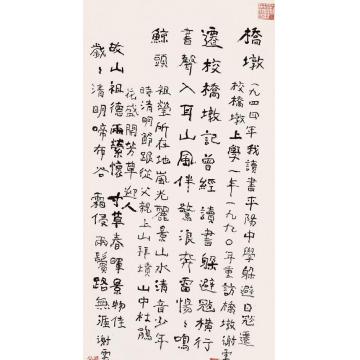 橋墩 一九四四年我讀書平陽中學躲避日寇遷
校橋墩上學一年一九九〇年重訪橋墩謝雲
遷校橋墩記曾經讀書躲避寇橫行
書聲入耳山風伴驚浪奔雷惕〻鳴
鯨頭 祖塋所在地嵐光麗景山水清音少年
時清明節跟從父親上山拜墳山中杜鵑
花盛開芳草迎人
故山祖德兩縈懷寸草春暉景物佳
歲〻清明啼布谷霜侵兩鬢路無涯謝雲